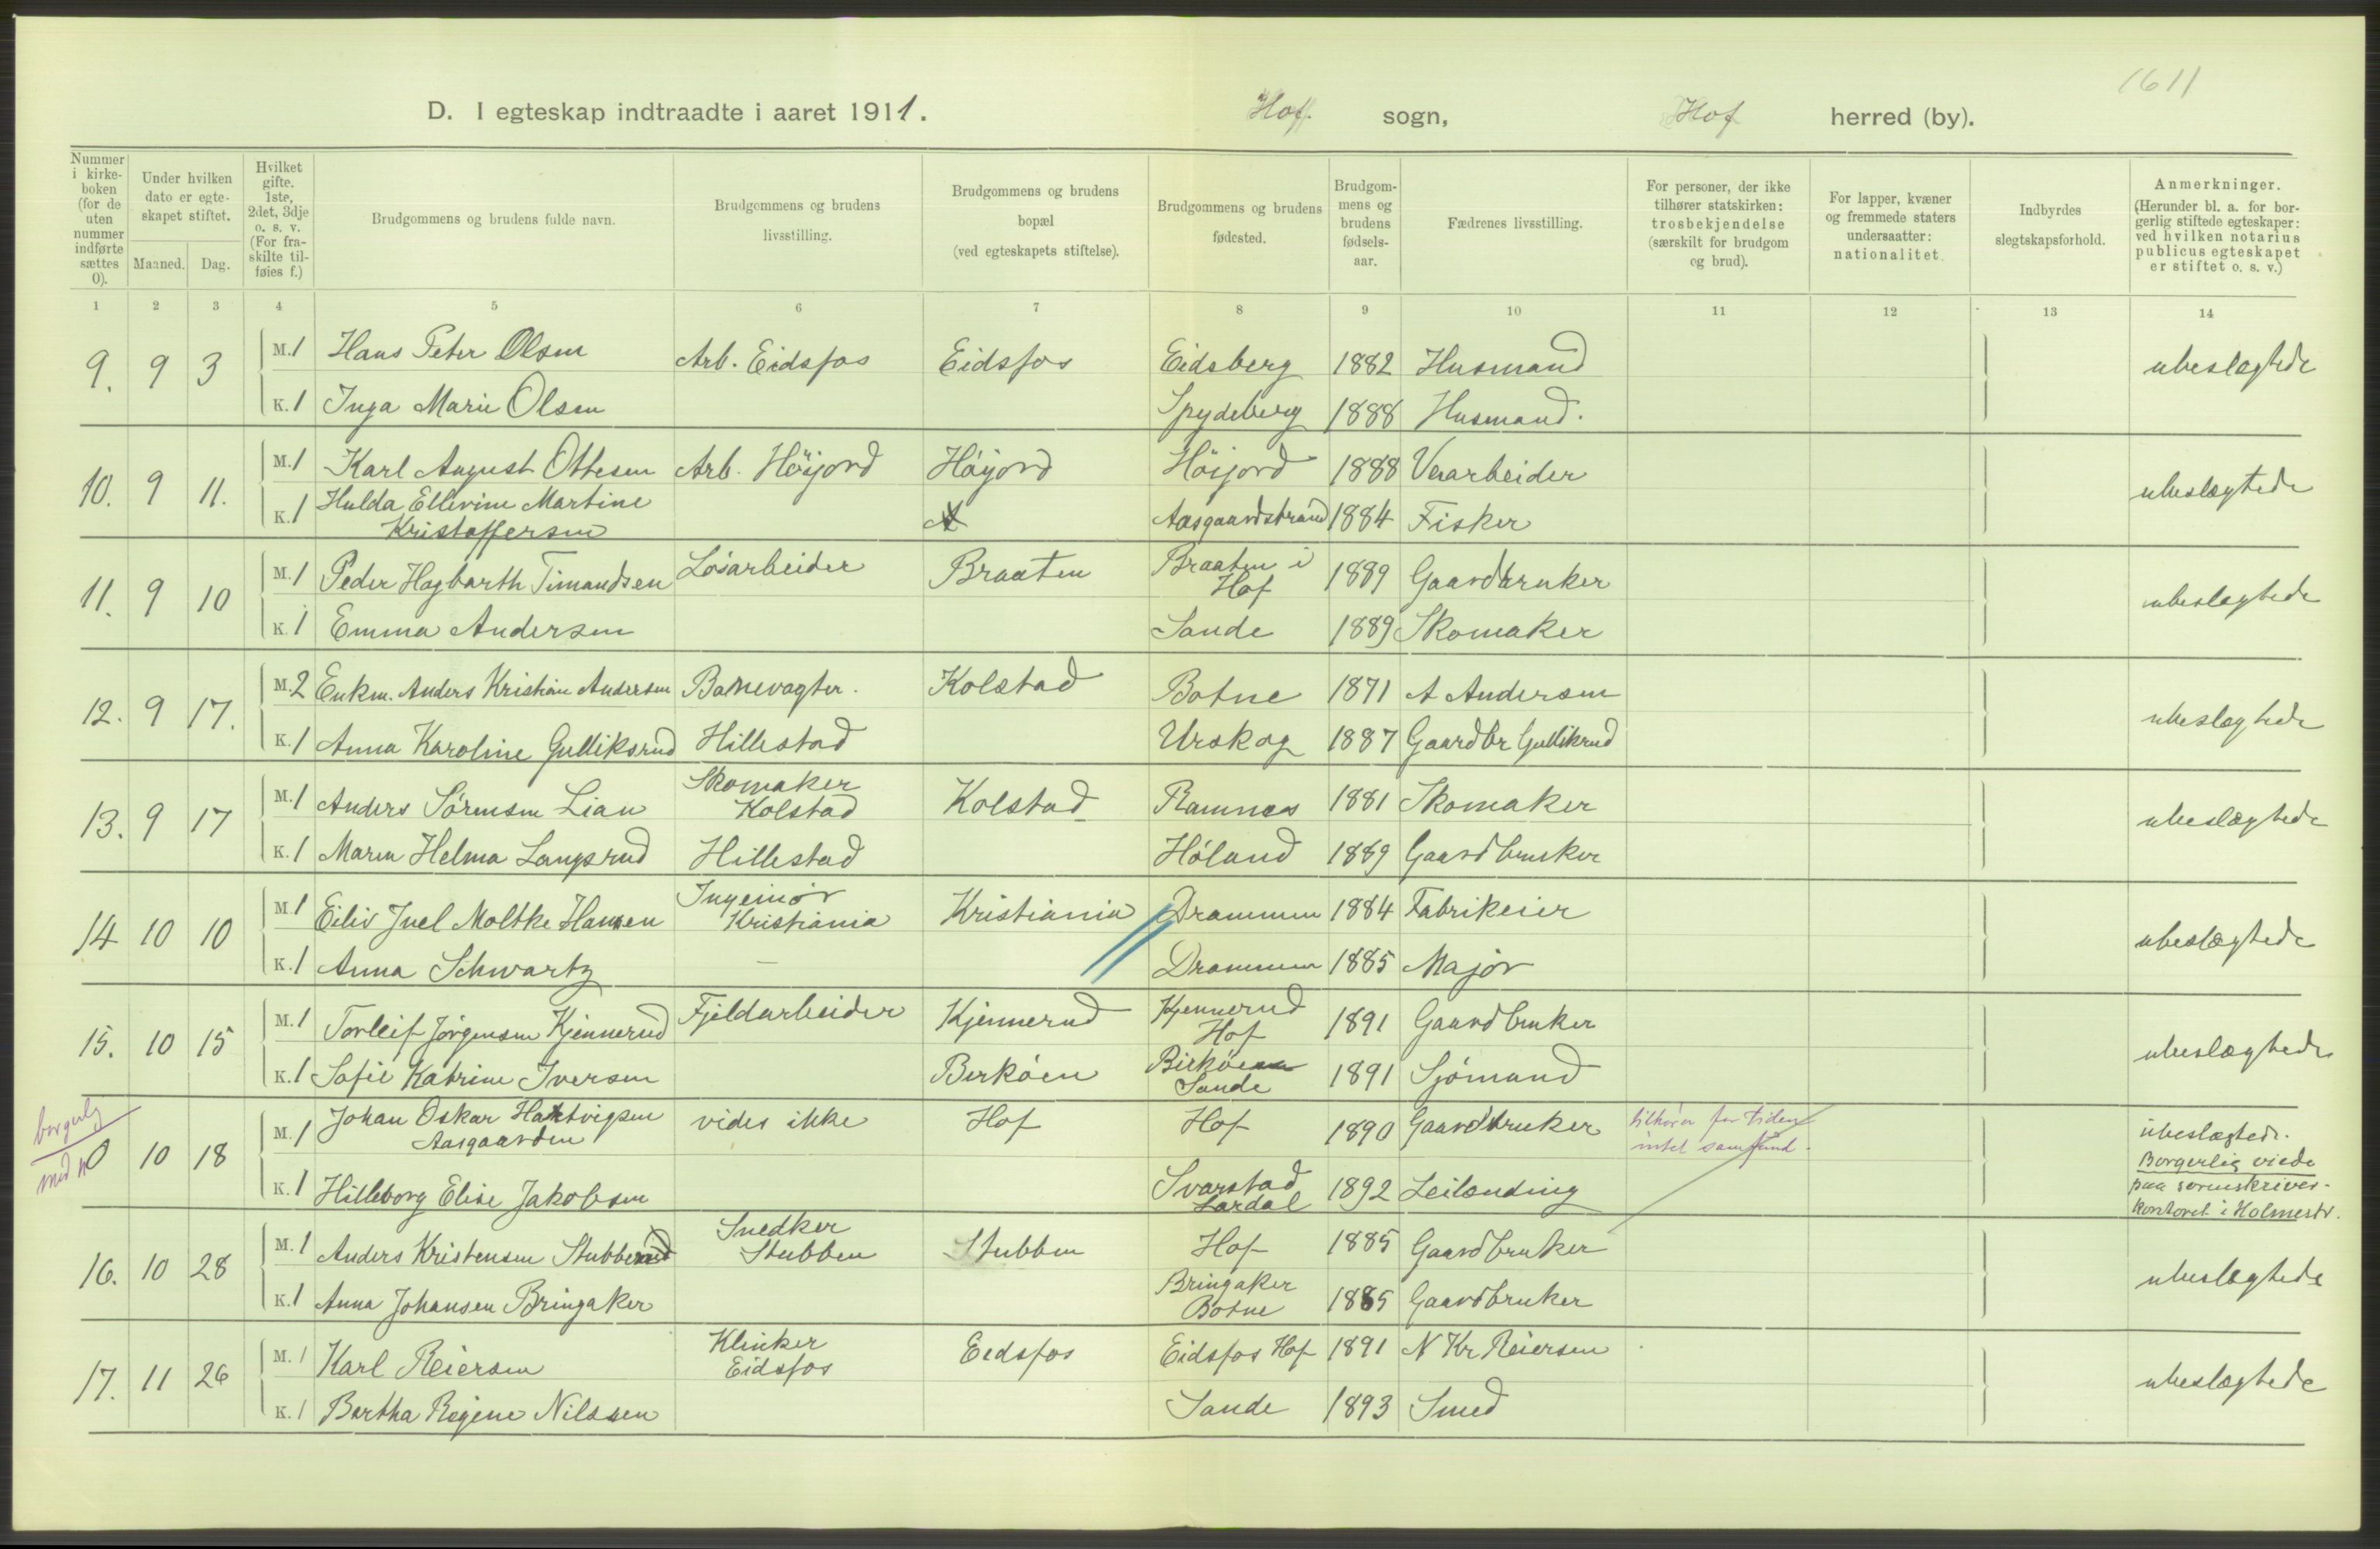 1611
D. I egteskap indtraadte i aaret 1911. Hof. sogn, Hof herred (by).
Nummer i kirke-boken (for de uten nummer indførte sættes 0).
Under hvilken dato er egte-skapet stiftet.
Maaned. Dag.
Hvilket gifte. 1ste, 2det, 3dje o. s. v. (For fra-skilte til-føies f.)
Brudgommens og brudens fulde navn.
Brudgommens og brudens livsstilling.
Brudgommens og brudens bopæl (ved egteskapets stiftelse).
Brudgommens og brudens fødested.
Brudgom-mens og brudens fødsels-aar.
Fædrenes livsstilling.
For personer, der ikke tilhører statskirken: trosbekjendelse (særskilt for brudgom og brud).
For lapper, kvæner og fremmede staters undersaatter: nationalitet.
Indbyrdes slegtskapsforhold.
Anmerkninger. (Herunder bl. a. for bor-gerlig stiftede egteskaper: ved hvilken notarius publicus egteskapet er stiftet o. s. v.)
1 2 3 4 5 6 7 8 9 10 11 12 13 14
9. 9 3 M. 1 Hans Peter Olsen Arb. Eidsfos Eidsfos Eidsberg 1882 Husmand ubeslegtede
K. 1 Inga Marie Olsen Spydeberg 1888 Husmand.
10. 9 11. M. 1 Karl August Ottesen Arb. Höijord Höijord Höijord 1888 Veiarbeider ubeslægtede
K. 1 Hulda Ellevine Martine Kristoffersen Aasgaardstrand 1884 Fisker
11. 9 10 M. 1 Peder Hagbarth Timandsen Løsarbeider Braaten Braaten i Hof 1889 Gaardbruker ubeslegtede
K. 1 Emma Andersen Sande 1889 Skomaker
12. 9 17. M. 2 Enkm. Anders Kristian Andersen Banevagter. Kolstad Botne 1871 A Andersen ubeslegtede
K. 1 Anna Karoline Gulliksrud Hillestad Urskog 1887 Gaardbr Gullikrud
13. 9 17 M. 1 Anders Sørensen Lian Skomaker Kolstad Kolstad Ramnes 1881 Skomaker ubeslægtede
K. 1 Maren Helma Langsrud Hillestad Høland 1889 Gaardbruker
14 10 10 M. 1 Eiliv Juel Moltke Hansen Ingeniør Kristiania Kristiania Drammen 1884 Fabrikeier ubeslægtede
K. 1 Anna Schwartz — Drammen 1885 Major
15. 10 15 M. 1 Torleif Jørgensen Kjennerud Fjeldarbeider Kjennerud Kjennerud Hof 1891 Gaardbruker ubeslægtede
K. 1 Sofie Katrine Iversen Berkøen Birkøen Sande 1891 Sjømand
borgerlig
0 10 18 M. 1 Johan Oskar Hartvigsen Aasgaarden vides ikke Hof Hof 1890 Gaardbruker tilhører for tiden intet samfund. ubeslægtede. Borgerlig viede paa sorenskriver-kontoret i Holmestr.
K. 1 Hilleborg Elise Jakobsen Svarstad Lardal 1892 Leilending
16. 10 28 M. 1 Anders Kristensen Stubberud Snedker Stubben Stubben Hof 1885 Gaardbruker ubeslegtede
K. 1 Anna Johansen Bringaker Bringaker Botne 1885 Gaardbruker
17. 11 26 M. 1 Karl Reiersen Klinker Eidsfos Eidsfos Eidsfos Hof 1891 N Kr Reiersen ubeslegtede
K. 1 Bertha Regine Nilssen Sande 1893 Smed